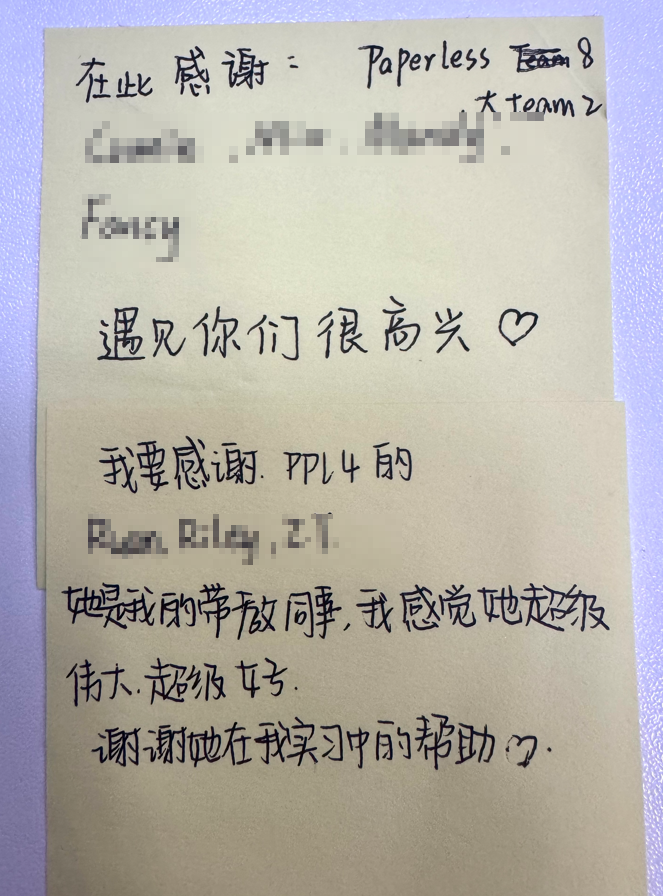 在此感谢： Paperless 8
大 team 2
Fancy
遇见你们很高兴♡
我要感谢. PPL4 的
Riley, ZT.
她是我的带教同事,我感觉她超级
伟大.超级好.
谢谢她在我实习中的帮助♡.